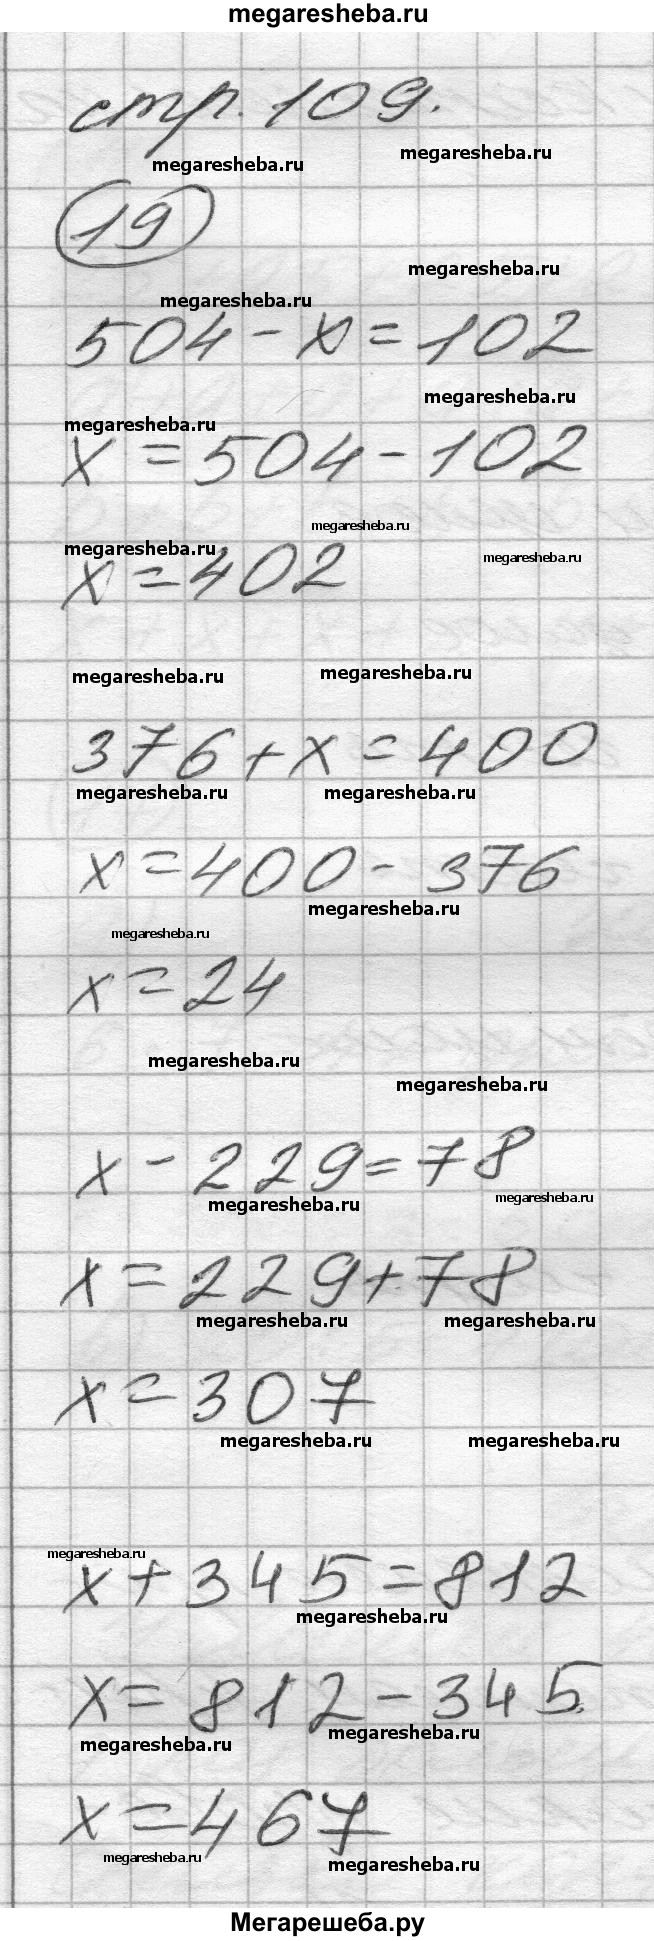 megaresheba.ru
стр. 109.
megaresheba.ru megaresheba.ru
19
megaresheba.ru
megaresheba.ru
504 - x = 102
megaresheba.ru
megaresheba.ru
x = 504 - 102
megaresheba.ru
megaresheba.ru
megaresheba.ru
x = 402
megaresheba.ru megaresheba.ru
376 + x = 400
megaresheba.ru megaresheba.ru
x = 400 - 376
megaresheba.ru
megaresheba.ru
x = 24
megaresheba.ru
megaresheba.ru
x - 229 = 78
megaresheba.ru megaresheba.ru
x = 229 + 78
megaresheba.ru megaresheba.ru
x = 307
megaresheba.ru megaresheba.ru
megaresheba.ru
x + 345 = 812
megaresheba.ru
x = 812 - 345
megaresheba.ru
megaresheba.ru
x = 467
megaresheba.ru
megaresheba.ru
Мегарешеба.ру